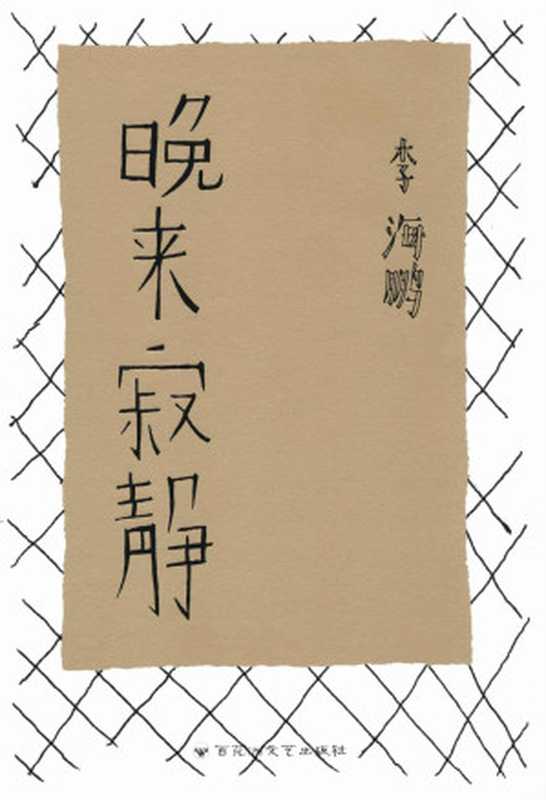 晚来寂静
李海鹏
百花洲文艺出版社